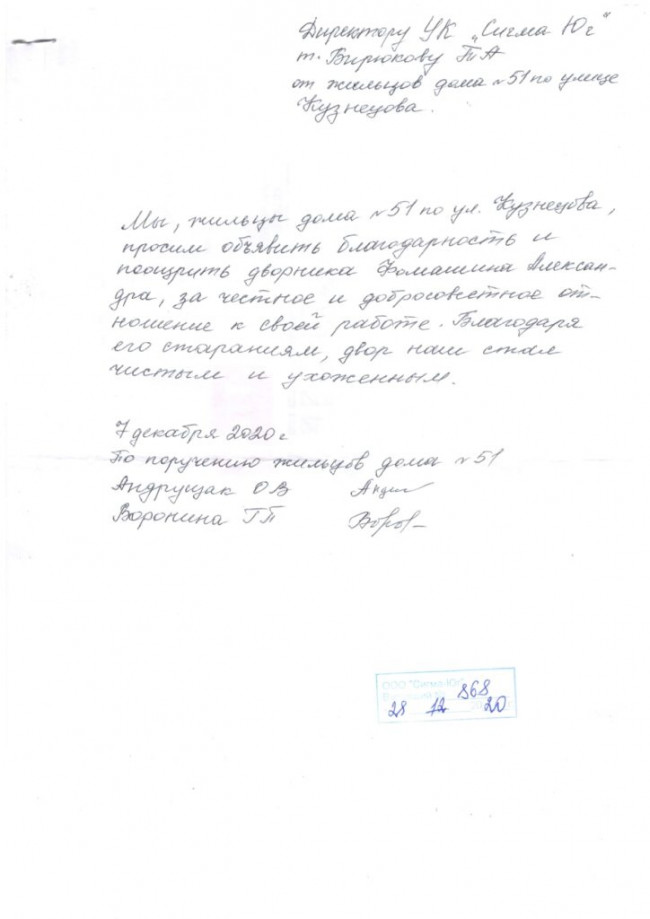 Директору УК „Сигма Юг"
т. Бирюкову П А
от жильцов дома №51 по улице
Кузнецова.
Мы, жильцы дома №51 по ул. Кузнецова,
просим объявить благодарность и
поощрить дворника Фомашина Алексан-
дра, за честное и добросовестное от-
ношение к своей работе. Благодаря
его стараниям, двор наш стал
чистым и ухоженным.
7 декабря 2020 г
По поручению жильцов дома №51
Андрущак О В
Воронина Г П
ООО "Сигма-Юг"
868
28 12 20